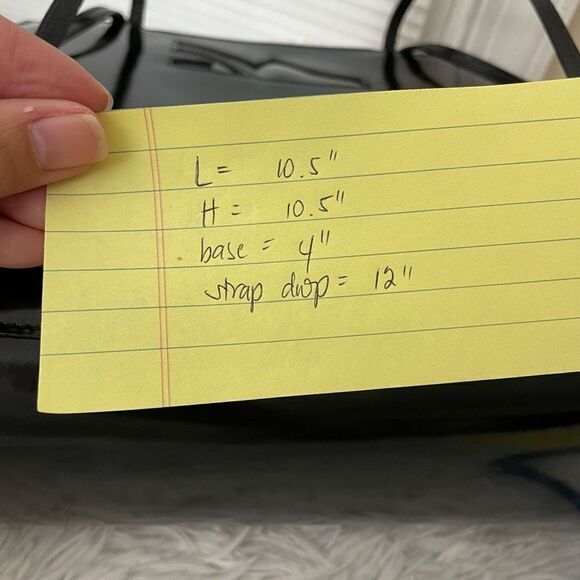 L = 10.5"
H = 10.5"
base = 4"
strap drop = 12"